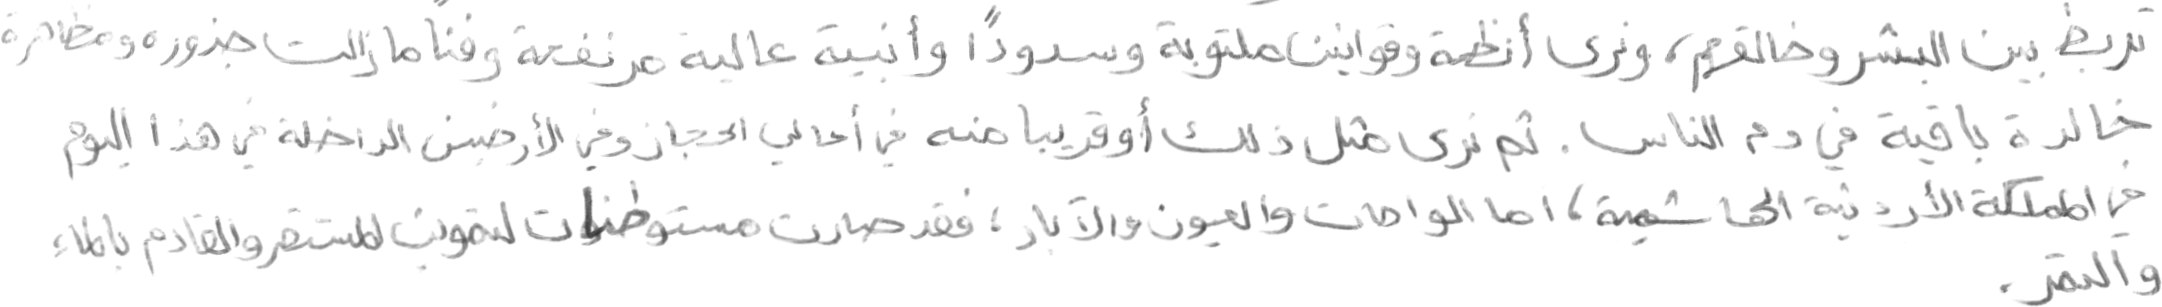 تربط بين البشر وخالقهم، ونرى أنظمة وقوانين مكتوبة وسدودًا وأبنية عالية مرتفعة وفنًا ما زالت جذوره ومظاهرة
خالدة باقية في دم الناس. ثم نرى مثل ذلك أو قريبا منه في أعالي الحجاز وفي الأرضين الداخلة في هذا اليوم
في المملكة الأردنية الهاشمية، اما الواحات والعيون والآبار، فقد صارت مستوطنات لتموين المستقر والقادم بالماء
والتمر.